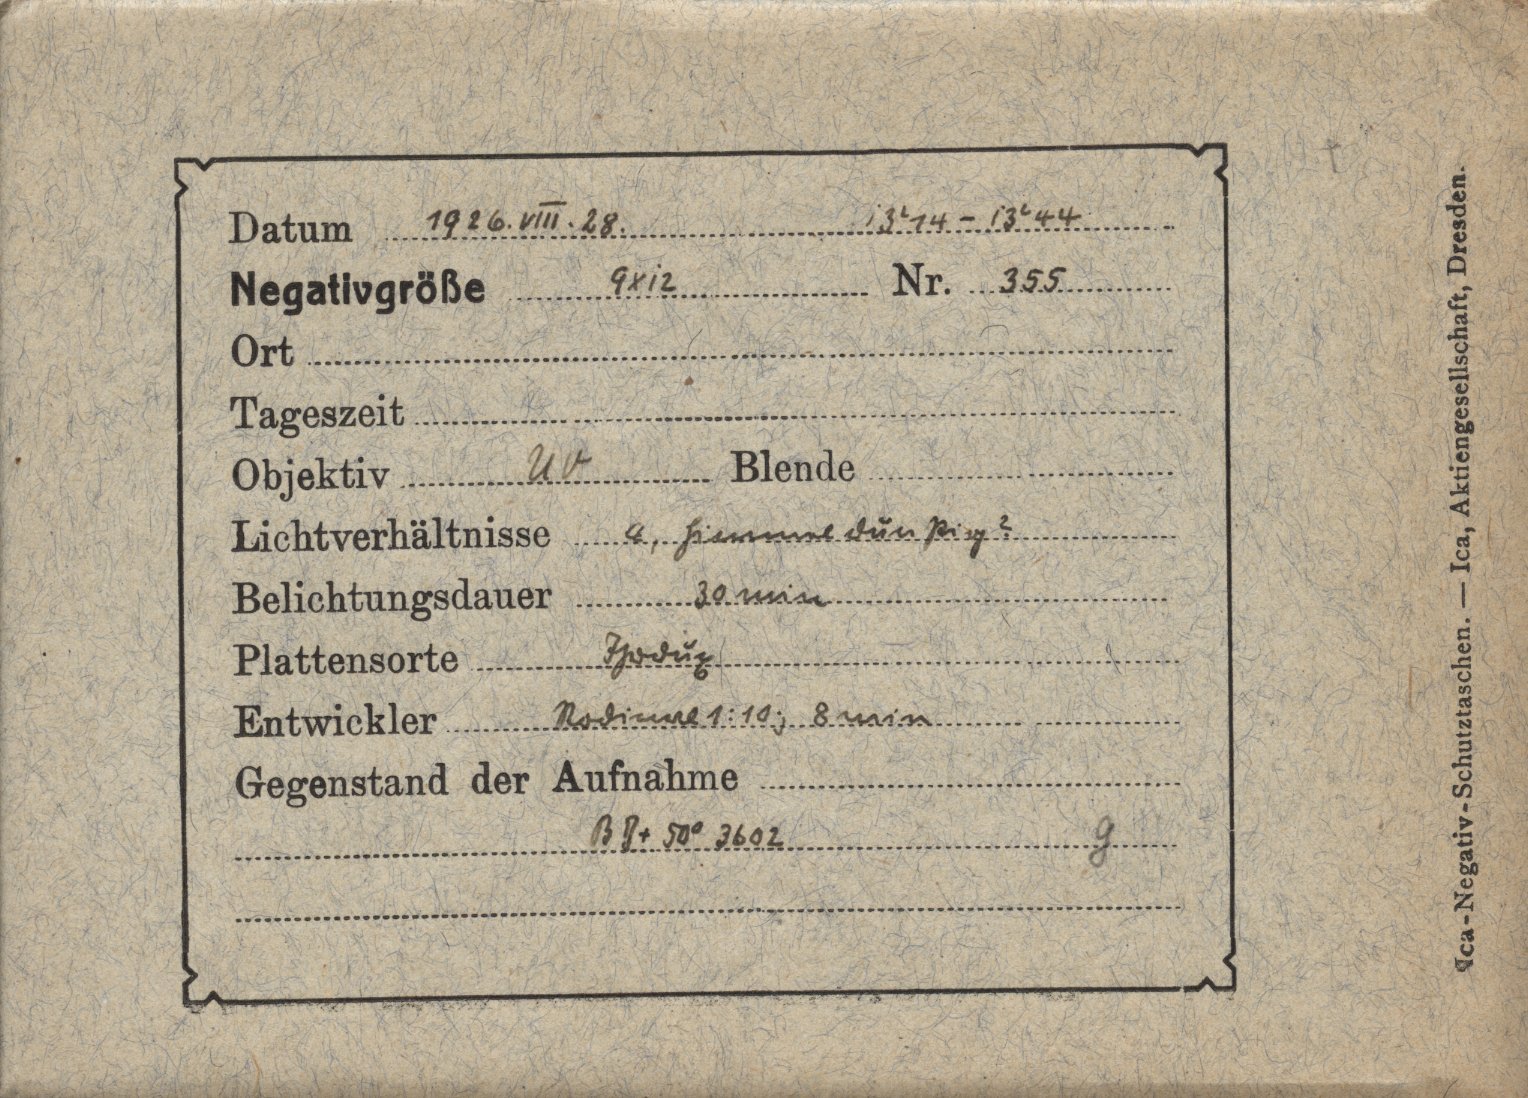 Datum 1926.VIII.28. 13ʰ14 – 13ʰ44
Negativgröße 9x12 Nr. 355
Ort
Tageszeit
Objektiv UV Blende
Lichtverhältnisse 4, Himmel dunstig?
Belichtungsdauer 30 min
Plattensorte
Entwickler Rodinal 1:10; 8 min
Gegenstand der Aufnahme
BD+ 50° 3602 g
Ica-Negativ-Schutztaschen. — Ica, Aktiengesellschaft, Dresden.